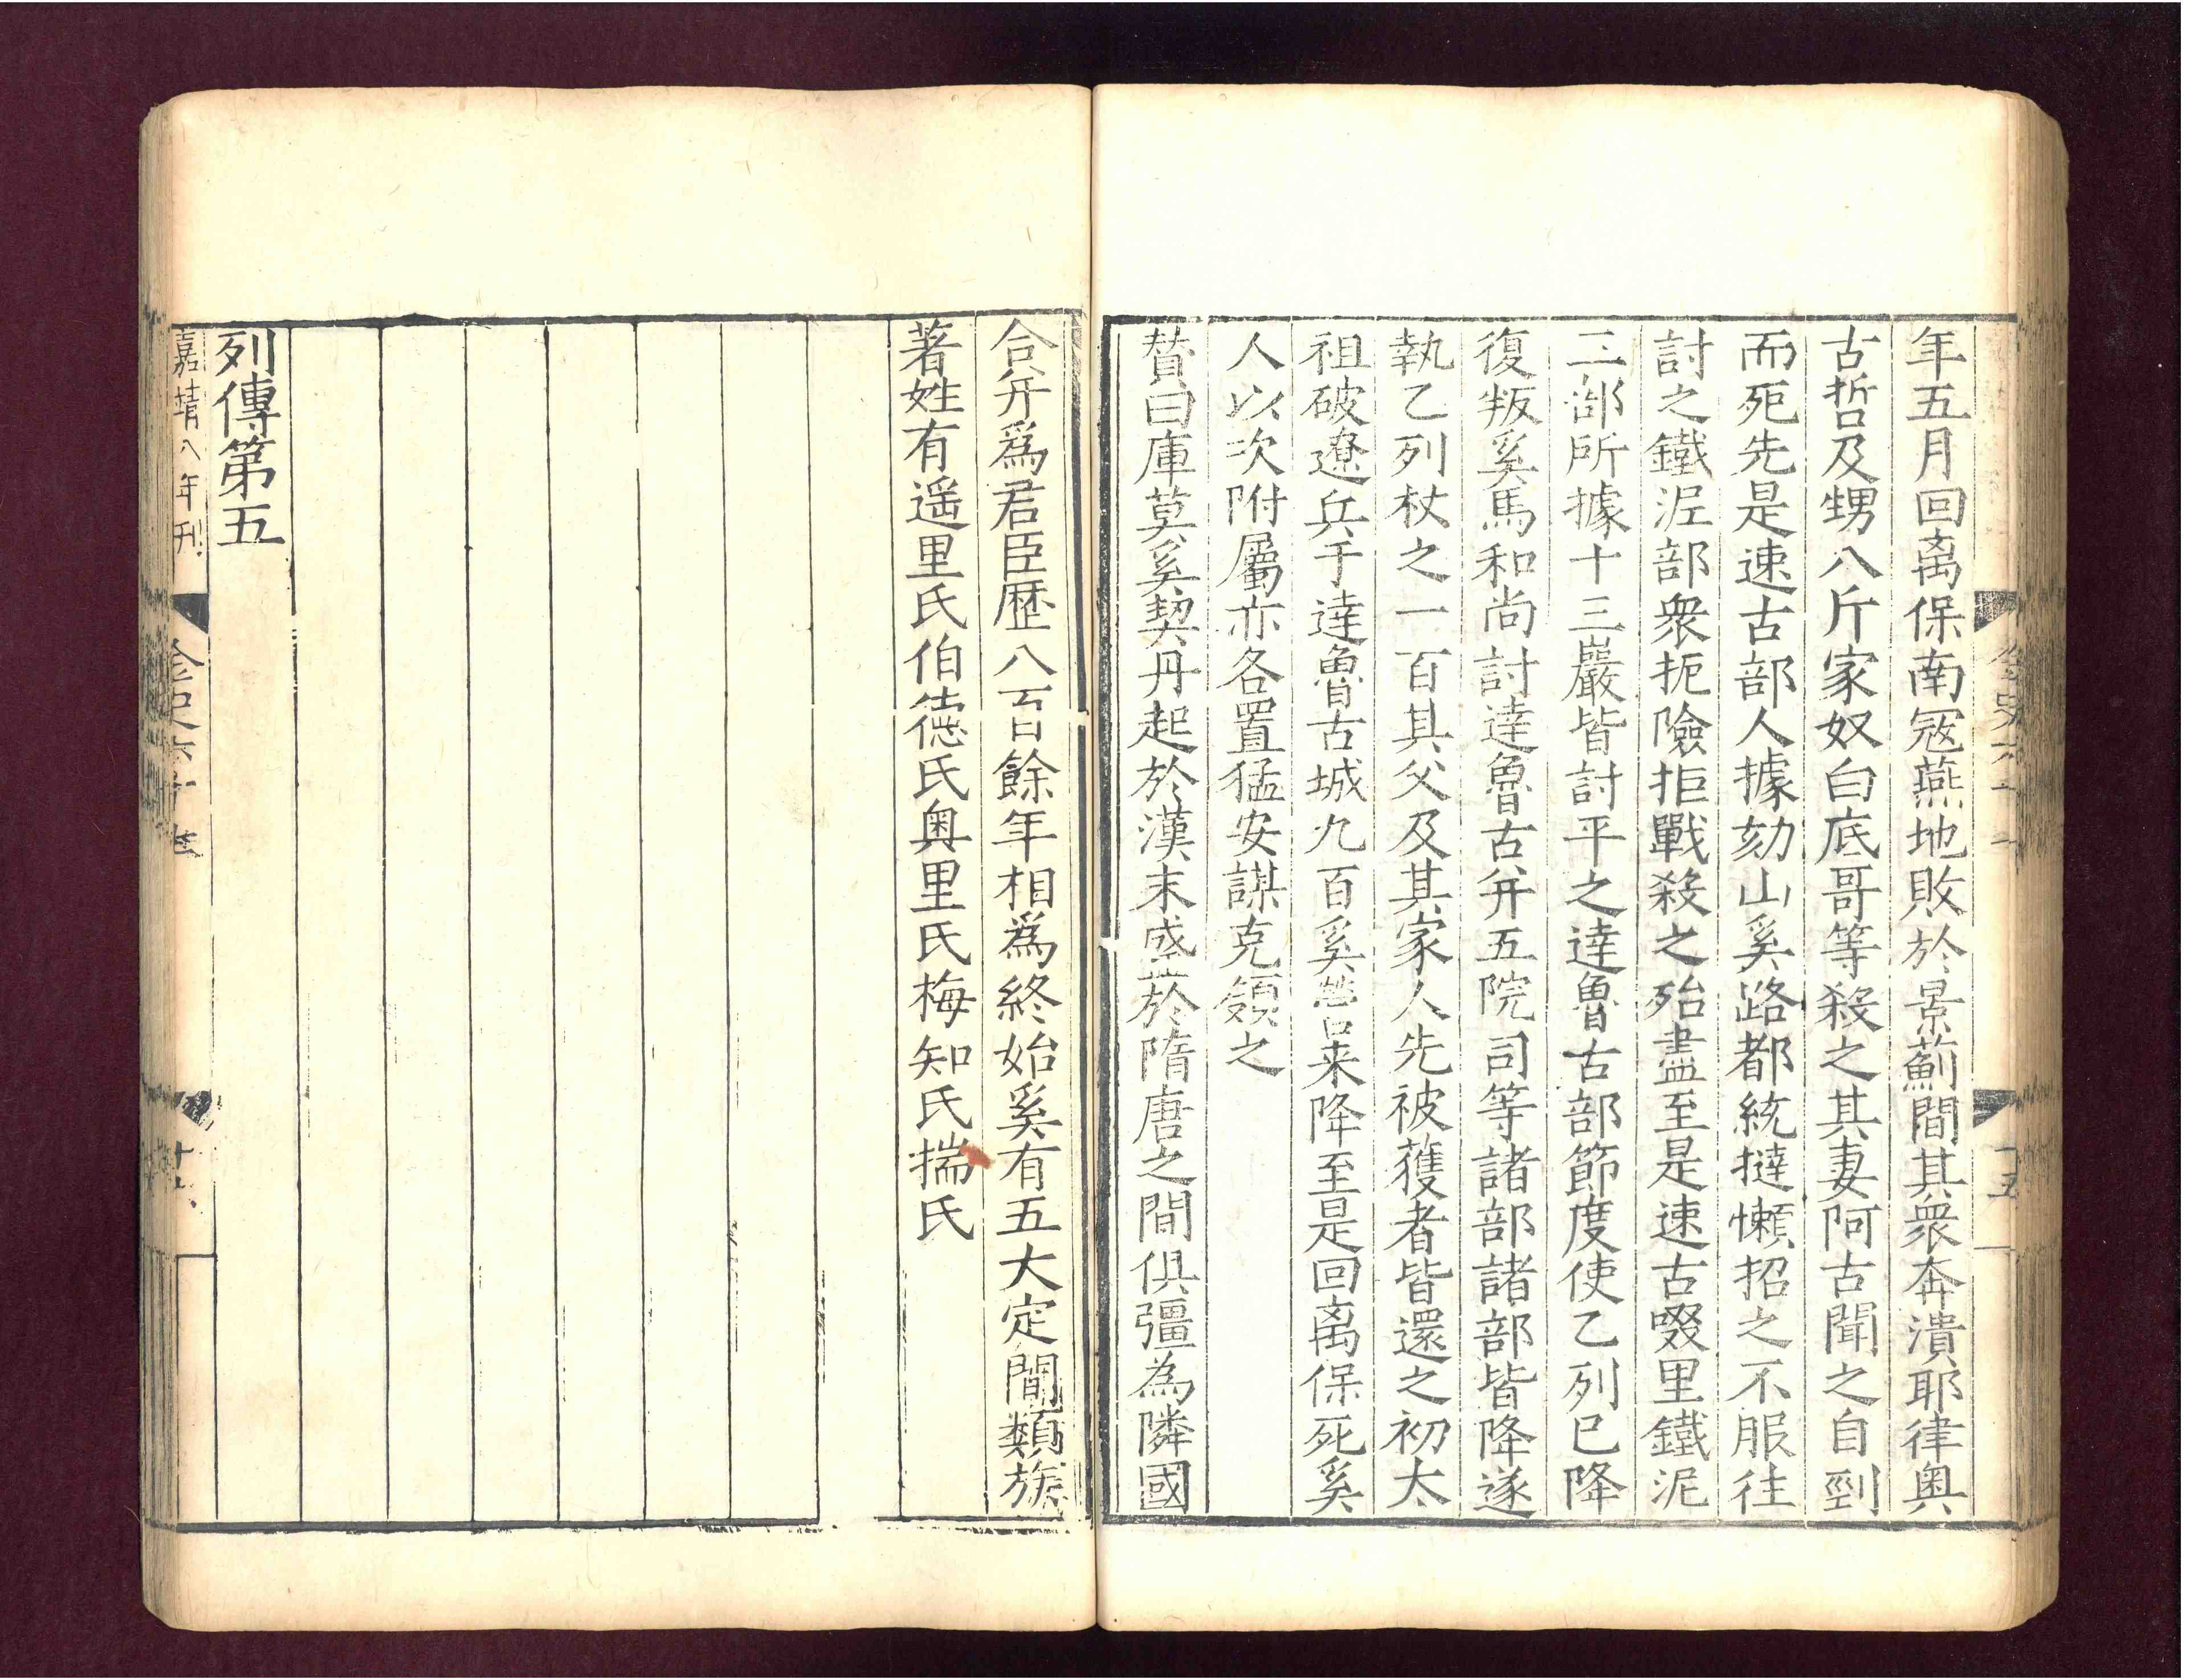 年五月回离保南冦燕地敗於景薊間其衆奔潰耶律奥
古哲及甥八斤家奴白底哥等殺之其妻阿古聞之自剄
而死先是速古部人據劾山奚路都統撻懶招之不服往
討之鐵泥部衆扼險拒戰殺之殆盡至是速古啜里鐵泥
三部所據十三巖皆討平之達魯古部節度使乙列已降
復叛奚馬和尚討達魯古并五院司等諸部諸部皆降遂
執乙列杖之一百其父及其家人先被獲者皆還之初太
祖破遼兵于達魯古城九百奚營来降至是回离保死奚
人以次附屬亦各置猛安謀克領之
賛曰庫莫奚契丹起於漢末盛於隋唐之間俱彊為隣國
合并爲君臣歷八百餘年相爲終始奚有五大定間類族
著姓有遥里氏伯德氏奥里氏梅知氏揣氏
列傳第五
嘉靖八年刊
金史六十七